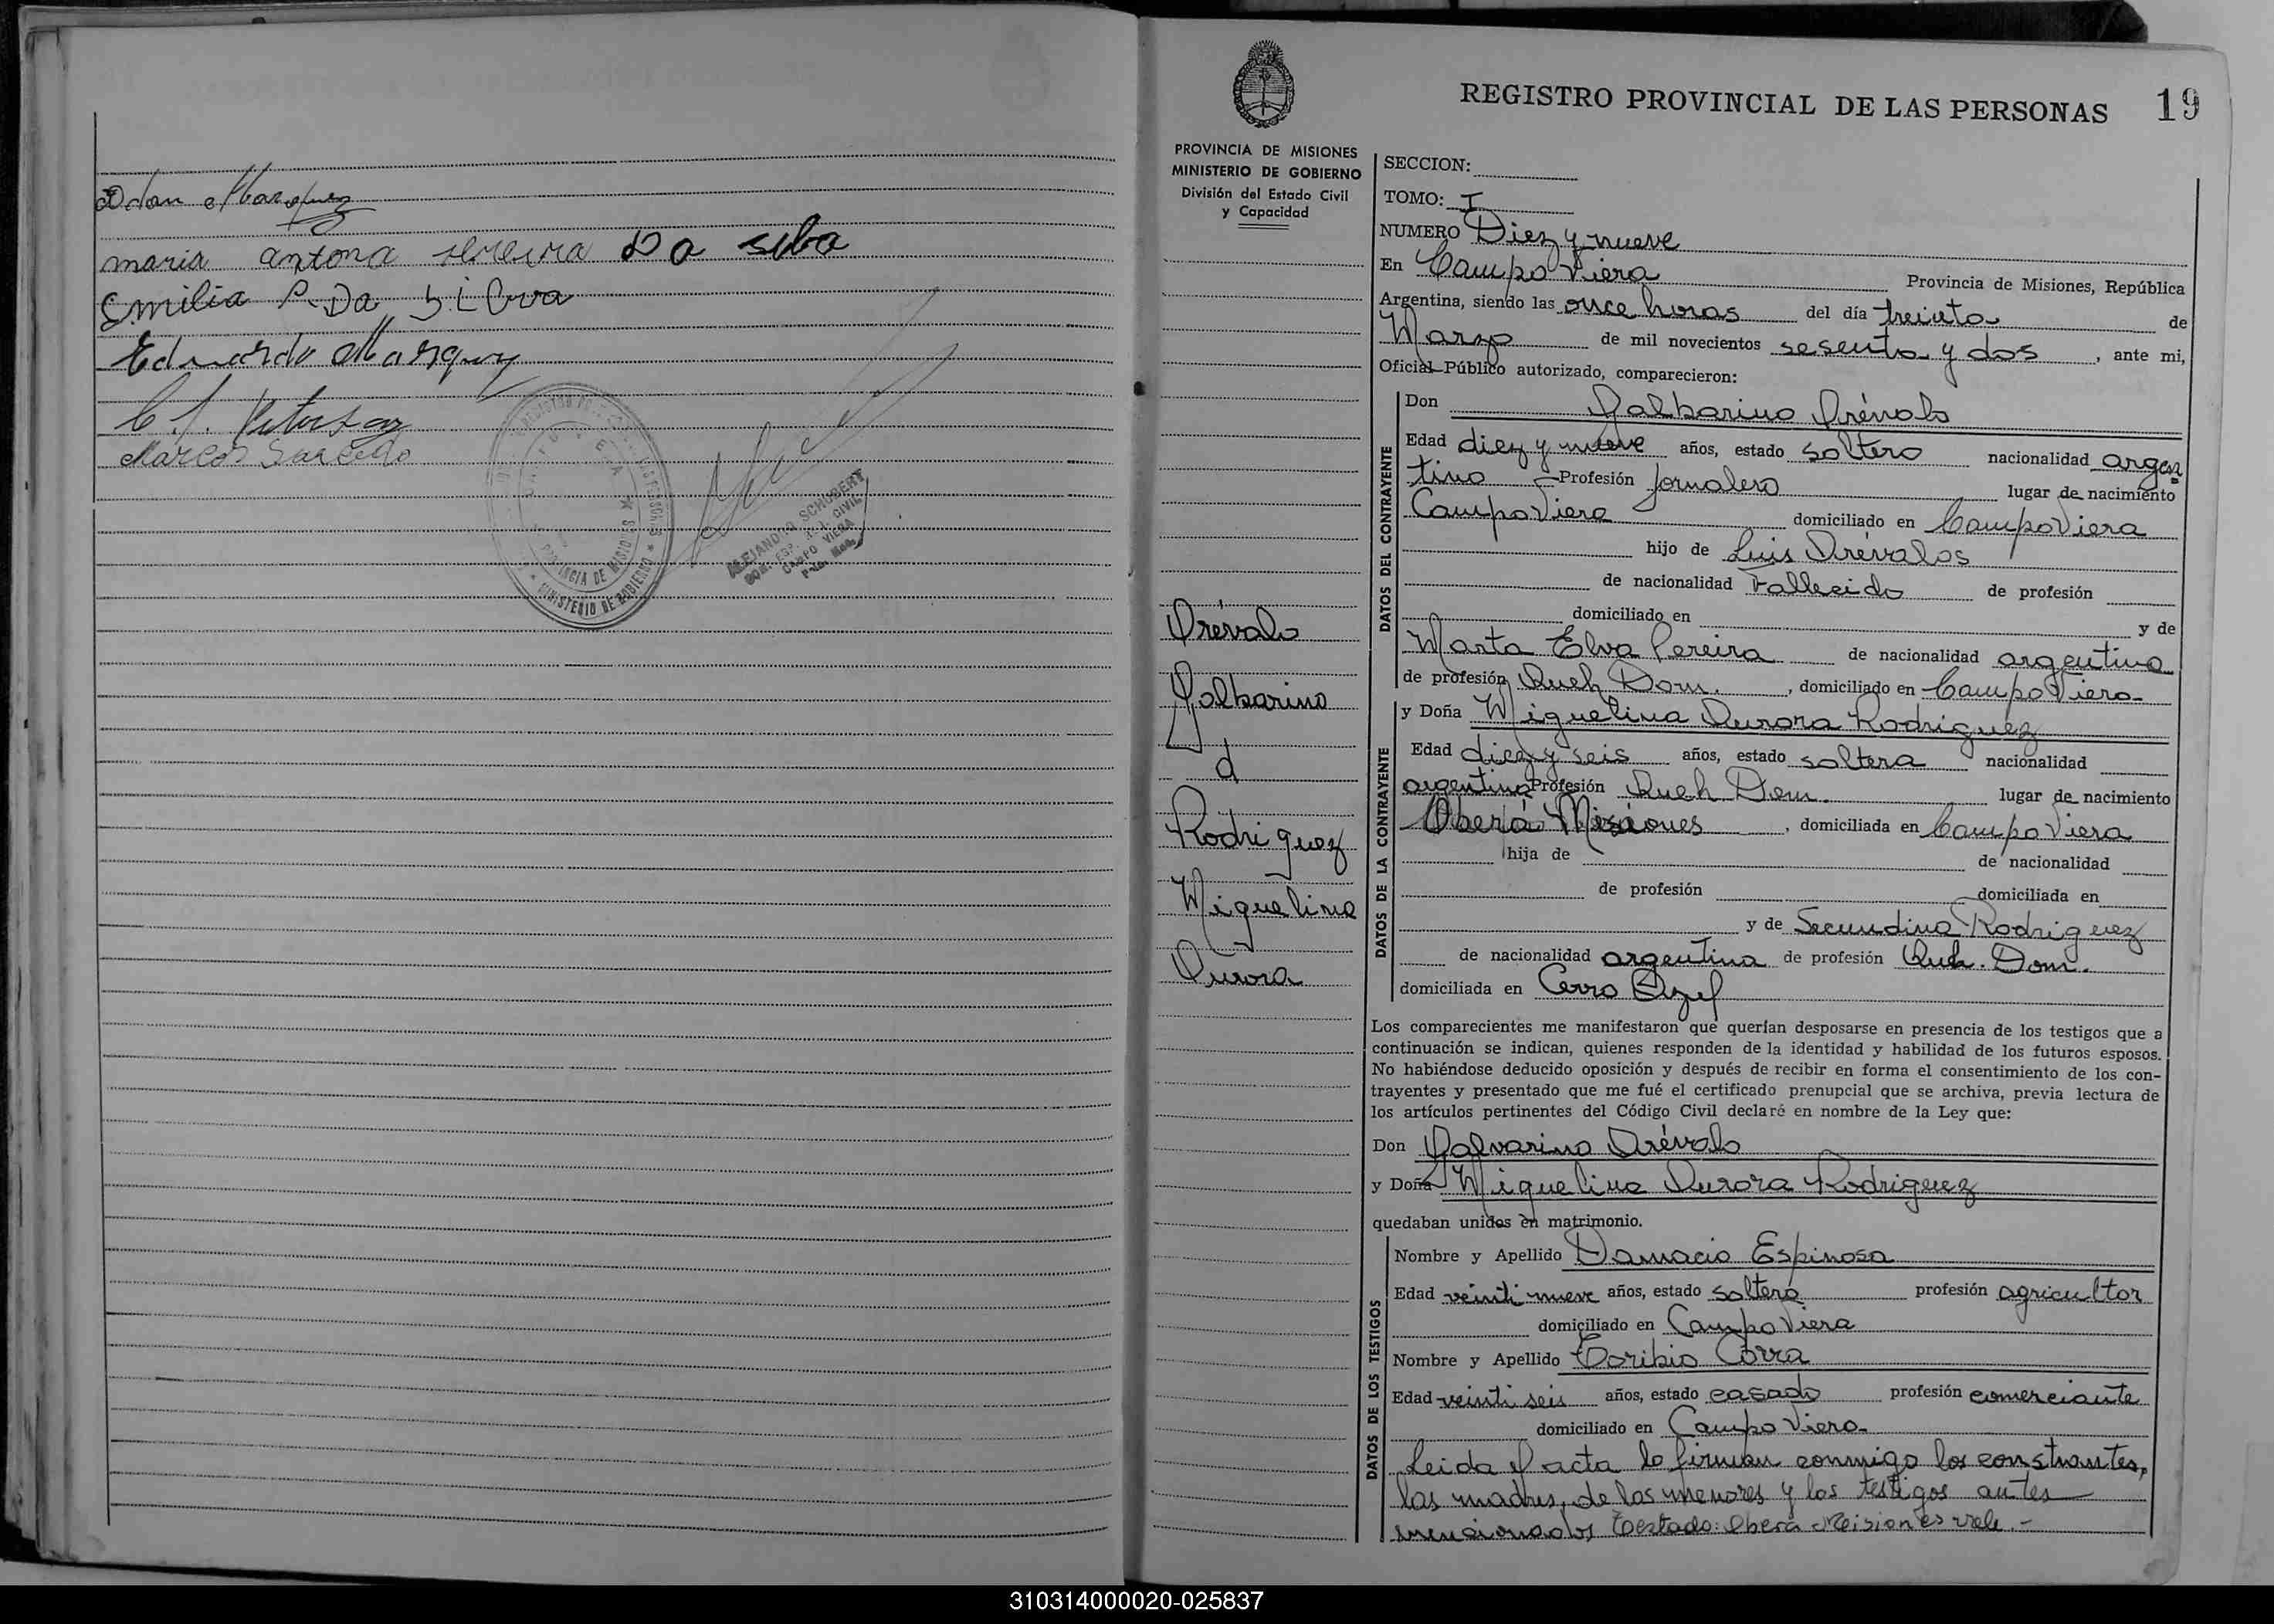 Adan Marquez
maria antona Pereira Da silva
Emilia P. Da Silva
Eduardo Marquez
Marcos Salcedo
MINISTERIO DE GOBIERNO
PROVINCIA DE MISIONES
ALEJANDRO SCHUBERT
CAMPO VIERA
REGISTRO PROVINCIAL DE LAS PERSONAS 19
PROVINCIA DE MISIONES
MINISTERIO DE GOBIERNO
División del Estado Civil
y Capacidad
Arévalo
Galbarino
d
Rodriguez
Miguelina
Aurora
SECCION:
TOMO: I
NUMERO Diez y nueve
En Campo Viera Provincia de Misiones, República
Argentina, siendo las once horas del día treinta de
Marzo de mil novecientos sesenta y dos, ante mi,
Oficial Público autorizado, comparecieron:
DATOS DEL CONTRAYENTE
Don Galbarino Arévalo
Edad diez y nueve años, estado soltero nacionalidad argen
tino Profesión Jornalero lugar de nacimiento
Campo Viera domiciliado en Campo Viera
hijo de Luis Arévalos
de nacionalidad Fallecido de profesión
domiciliado en y de
Marta Elva Pereira de nacionalidad argentina
de profesión Queh Dom., domiciliado en Campo Viera
DATOS DE LA CONTRAYENTE
y Doña Miguelina Aurora Rodriguez
Edad diez y seis años, estado soltera nacionalidad
argentina Profesión Queh Dom. lugar de nacimiento
Oberá Misiones, domiciliada en Campo Viera
hija de de nacionalidad
de profesión domiciliada en
y de Secundina Rodriguez
de nacionalidad argentina de profesión Queh. Dom.
domiciliada en Cerro Azul
Los comparecientes me manifestaron que querían desposarse en presencia de los testigos que a
continuación se indican, quienes responden de la identidad y habilidad de los futuros esposos.
No habiéndose deducido oposición y después de recibir en forma el consentimiento de los con-
trayentes y presentado que me fué el certificado prenupcial que se archiva, previa lectura de
los artículos pertinentes del Código Civil declaré en nombre de la Ley que:
Don Galvarino Arévalo
y Doña Miguelina Aurora Rodriguez
quedaban unidos en matrimonio.
DATOS DE LOS TESTIGOS
Nombre y Apellido Damacio Espinosa
Edad veinti nueve años, estado soltero profesión agricultor
domiciliado en Campo Viera
Nombre y Apellido Toribio Corra
Edad veinti seis años, estado casado profesión comerciante
domiciliado en Campo Viera
Leida el acta la firman conmigo los constrantes,
las madres, de los menores y los testigos antes
mencionados Testado: Oberá Misiones vale.-
310314000020-025837